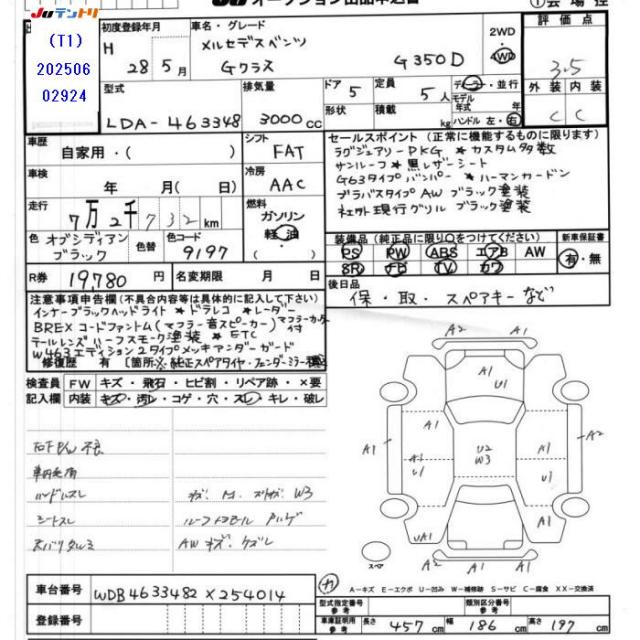 JUテントリ
オークション出品申込書
会場控
(T1)
202506
02924
初度登録年月
H 28年5月
車名・グレード
メルセデスベンツ
Gクラス G350D
2WD
4WD
評価点
3.5
型式
LDA-463348
排気量
3000cc
ドア
5
定員
5人
ディーラー・並行
モデル年式
形状
積載
kg
ハンドル 左・右
外装 内装
C C
車歴
自家用・( )
シフト
FAT
車検
年 月( 日)
冷房
AAC
走行
7万2千732km
燃料
ガソリン
軽油
( )
色
オブシディアン
ブラック
色替
色コード
9197
R券
19,780円
名変期限 月 日
セールスポイント(正常に機能するものに限ります)
ラグジュアリーPKG * カスタム多数
サンルーフ * 黒レザーシート
G63タイプバンパー * ハーマンカードン
ブラバスタイプAW ブラック塗装
現行グリル ブラック塗装
装備品(純正品に限り○をつけてください)
PS PW ABS エアB AW
SR ナビ TV カワ
新車保証書
有・無
後日品
保・取・スペアキーなど
注意事項申告欄(不具合内容等は具体的に記入して下さい)
インナーブラックヘッドライト * ドラレコ * レーダー
BREXコードファントム(マフラー音スピーカー)マフラーカッター付
テールレンズハーフスモーク塗装 * ETC
W463エディション2タイプメッキアンダーガード
修復歴 有 [箇所
検査員
記入欄
FW キズ・飛石・ヒビ割・リペア跡・×要
内装 キズ・汚レ・コゲ・穴・スレ・キレ・破レ
不良
ハンドルスレ
シートスレ
W3
AWキズ、ケズレ
A2
A1
U1
A1
A1
A1
U1
U2
W3
A1
U1
A2
UA1
A1
A1
A2
スペア
A-キズ E-エクボ U-凹み W-補修跡 S-サビ C-腐食 XX-交換済
車台番号
WDB4633482X254014
登録番号
型式指定番号
参考
類別区分番号
参考
車庫証明用
参考
長さ 457cm
幅 186cm
高さ 197cm